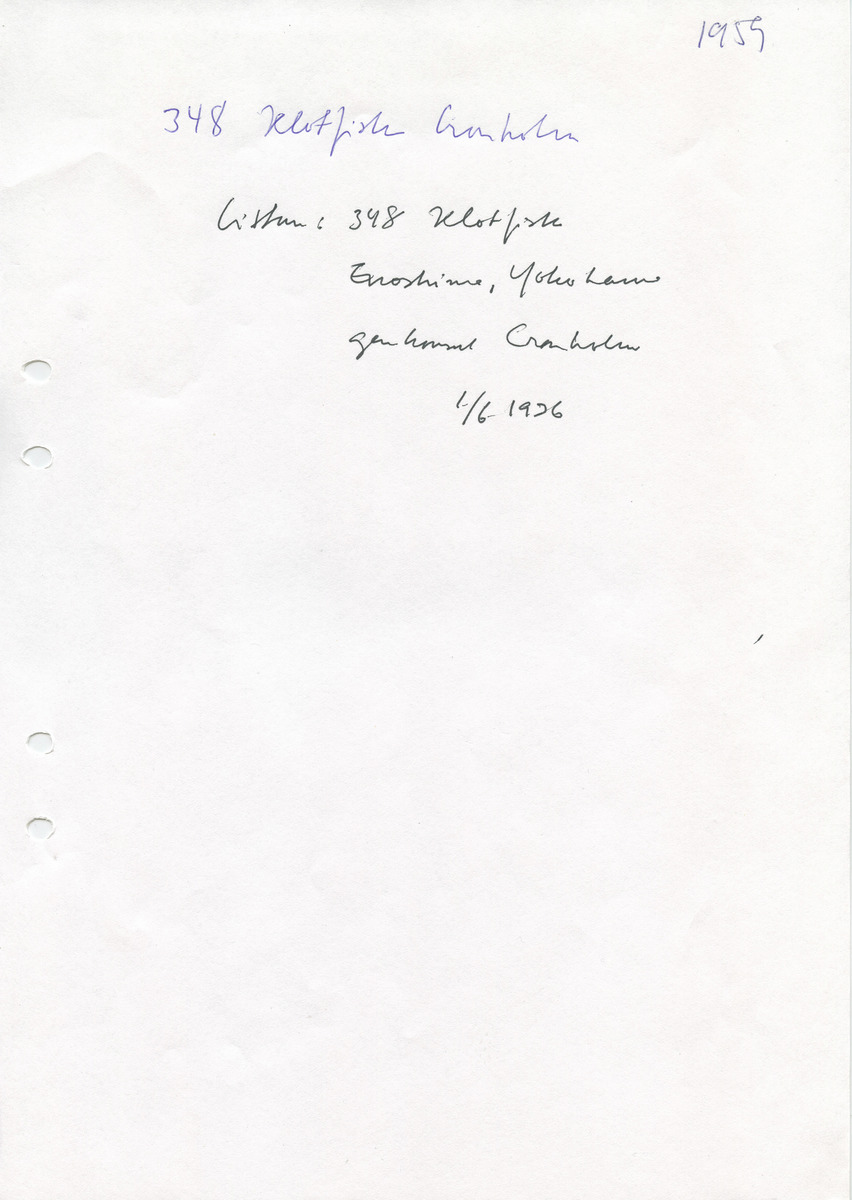 1959
348 Klotfisk Cronholm
Listan: 348 Klotfisk
Enoshima, Yokohama
genkonsul Cronholm
1/6 1926